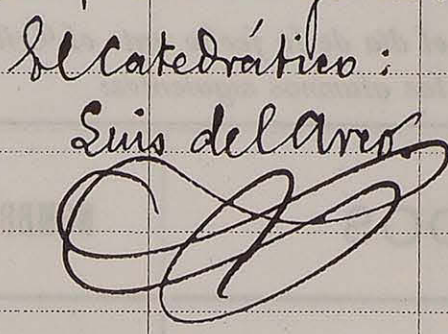 El Catedrático:
Luis del Arco